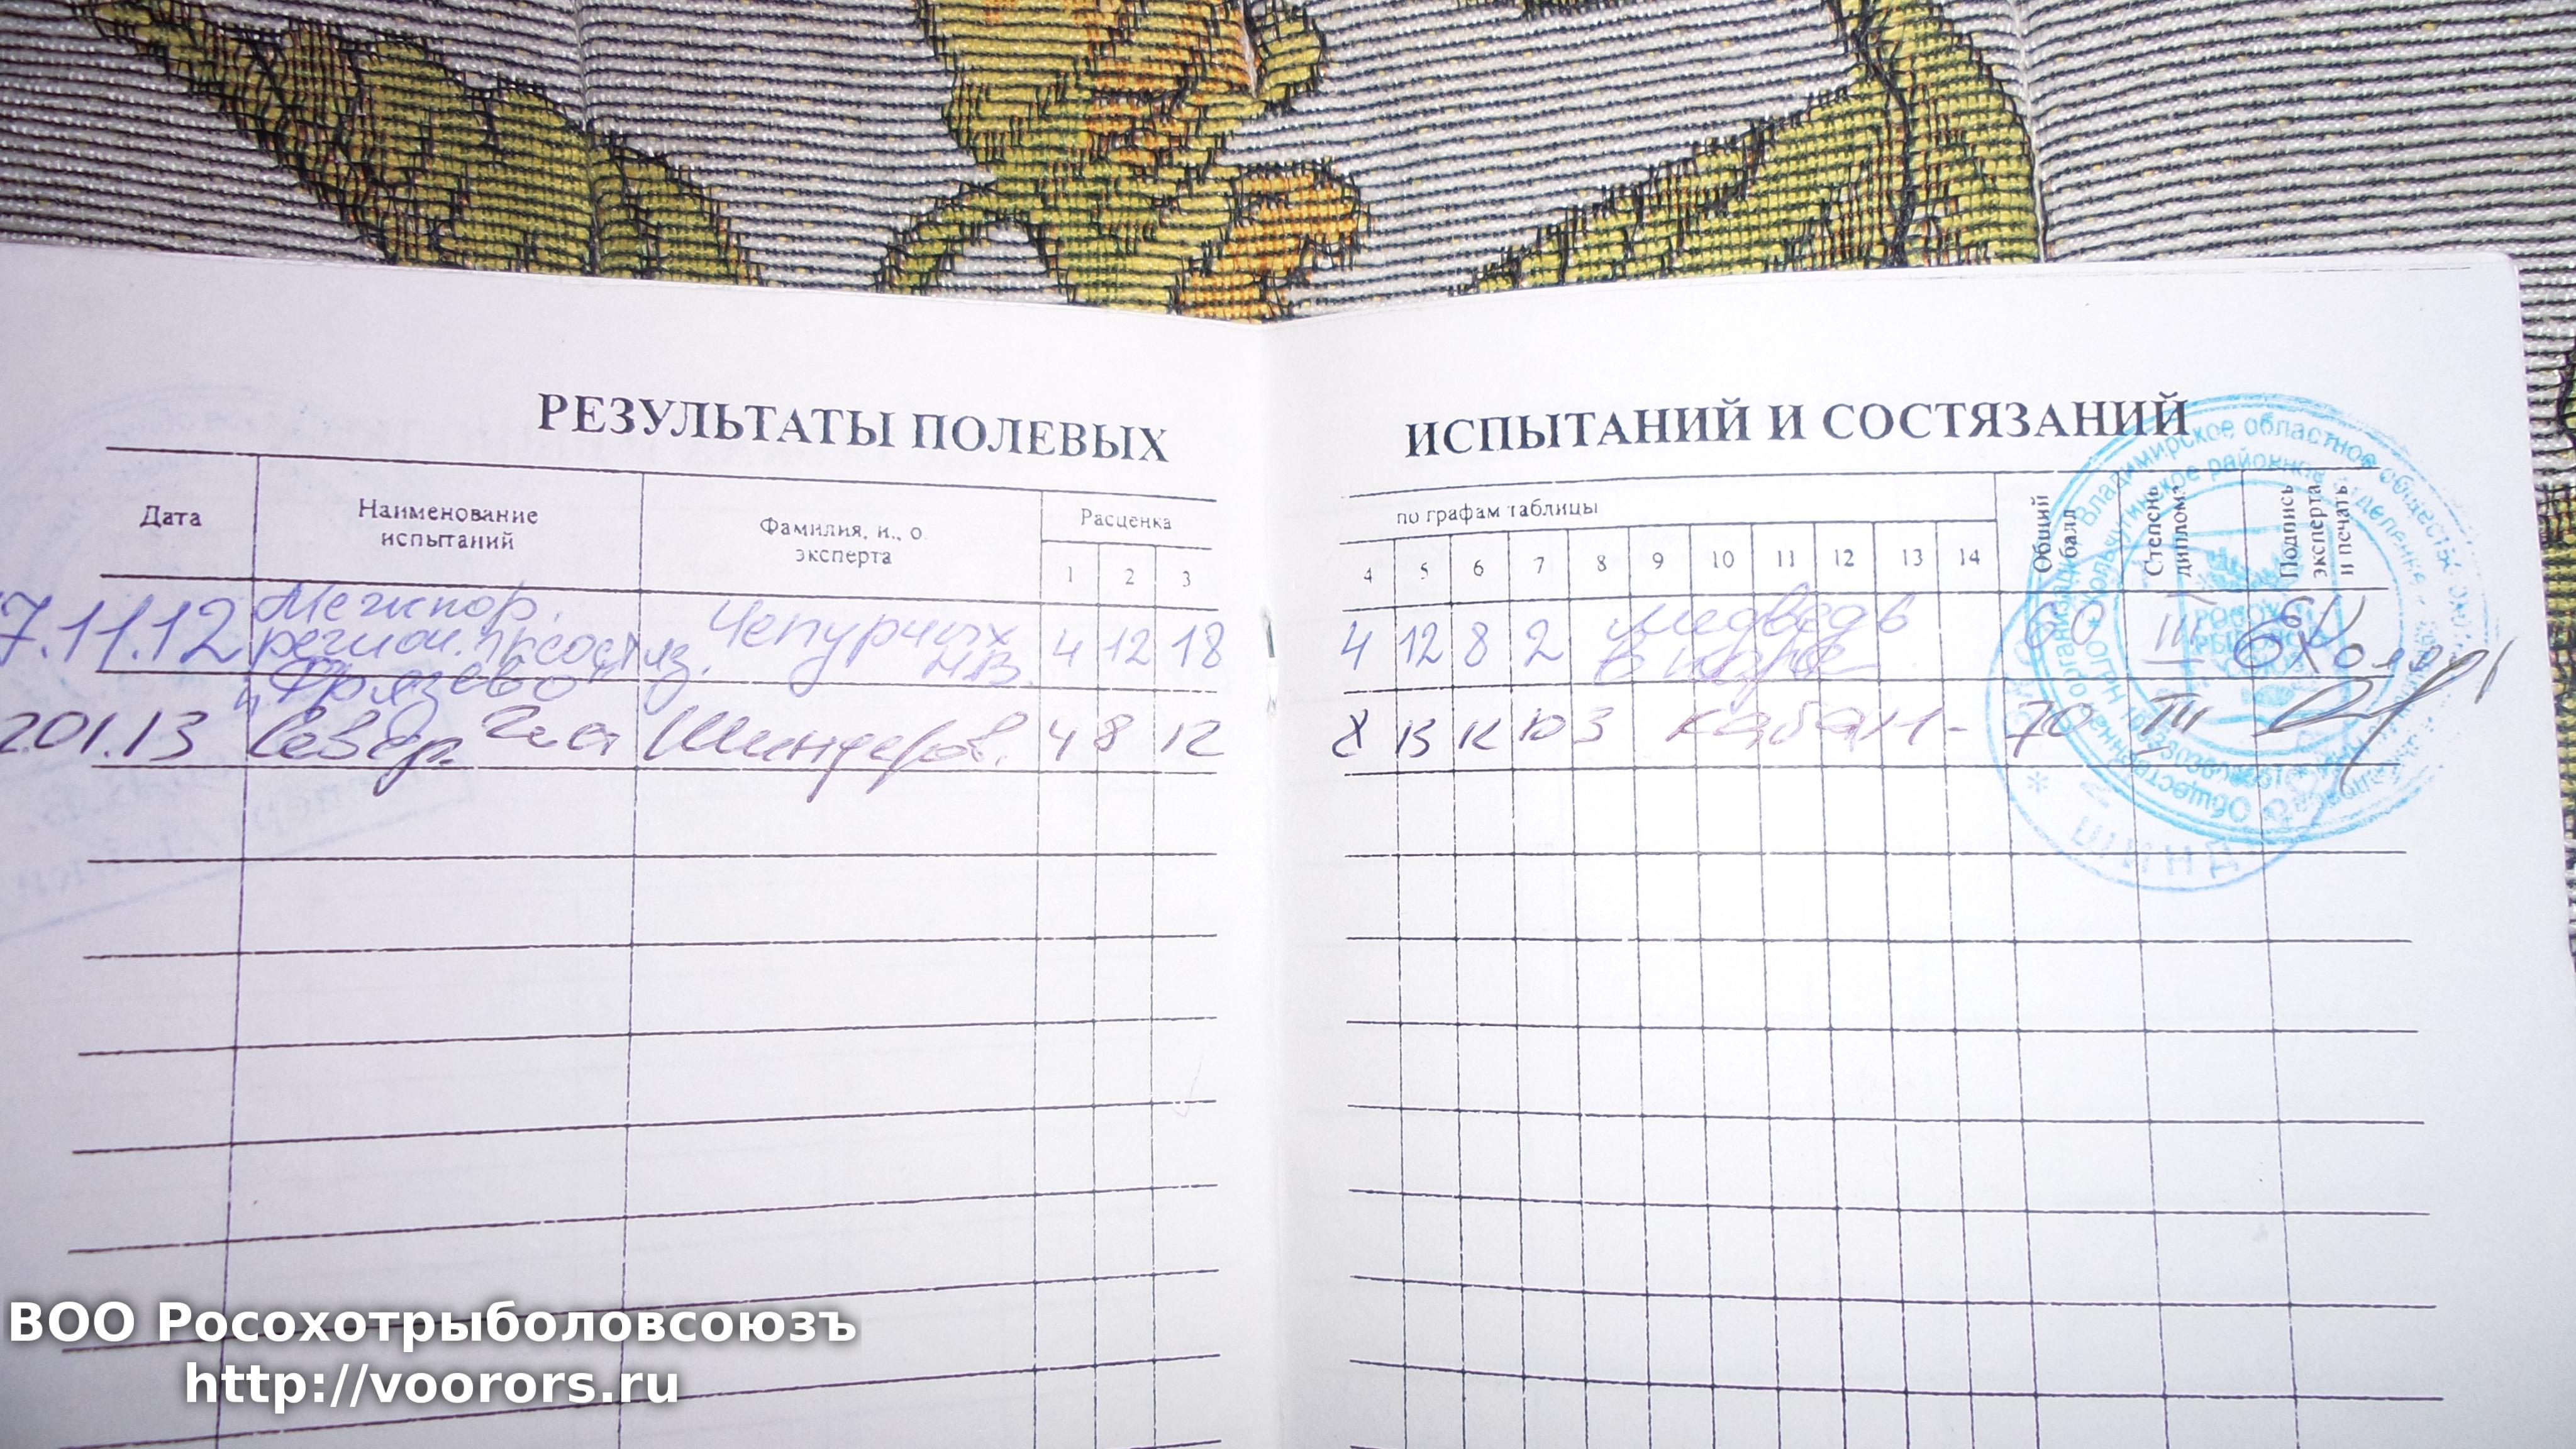 РЕЗУЛЬТАТЫ ПОЛЕВЫХ ИСПЫТАНИЙ И СОСТЯЗАНИЙ
Дата
Наименование
испытаний
Фамилия, и., о.
эксперта
Расценка
по графам таблицы
Общий
балл
Степень
диплома
Подпись
эксперта
и печать
1 2 3 4 5 6 7 8 9 10 11 12 13 14
7.11.12 Межпор.
регион. состяз.
"Фрязево"
Чепурных
Н.В.
4 12 18 4 12 8 2 медведь 60 III
201.13 Север. Шиндеров. 4 8 12 8 13 12 10 3 кабан - 70 III
Владимирское областное общество
районное отделение
ШИНД
ВОО Росохотрыболовсоюзъ
http://voorors.ru